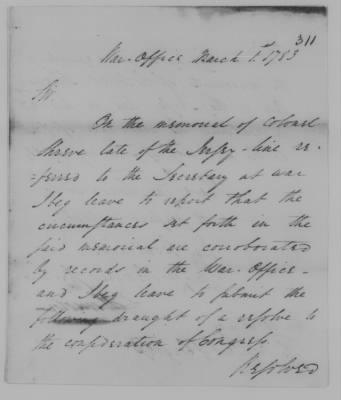 311
War-Office March 1st 1783
Sir
On the memorial of Colonel
Shreve late of the Jersey-line re-
=ferred to the Secretary at war
I beg leave to report that the
circumstances set forth in the
said memorial are corroborated
by records in the War-Office-
and I beg leave to submit the
following draught of a resolve to
the consideration of Congress.
Resolved